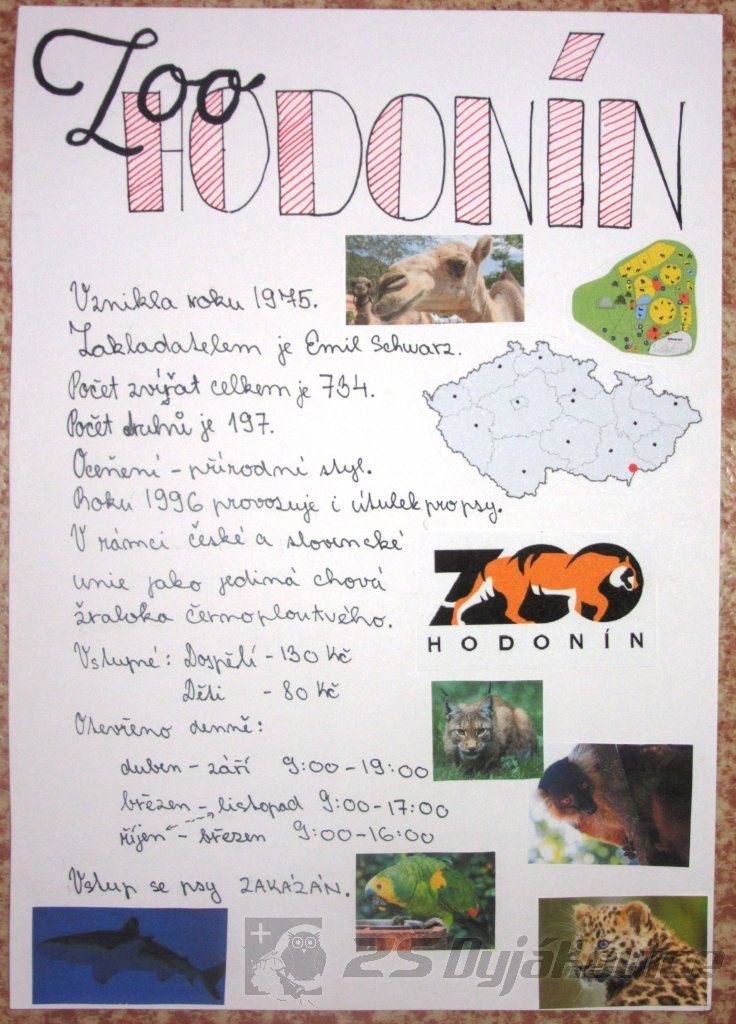 Zoo
HODONÍN
Vznikla roku 1975.
Zakladatelem je Emil Schwarz.
Počet zvířat celkem je 734.
Počet druhů je 197.
Ocenění - přírodní styl.
Roku 1996 provozuje i útulek pro psy.
V rámci české a slovincké
unie jako jediná chová
žraloka černoploutvého.
ZOO
HODONÍN
Vstupné: Dospělí - 130 Kč
Děti - 80 Kč
Otevřeno denně:
duben - září 9:00 - 19:00
březen - listopad 9:00 - 17:00
říjen - březen 9:00 - 16:00
Vstup se psy ZAKÁZÁN.
ZS Dyjákovice